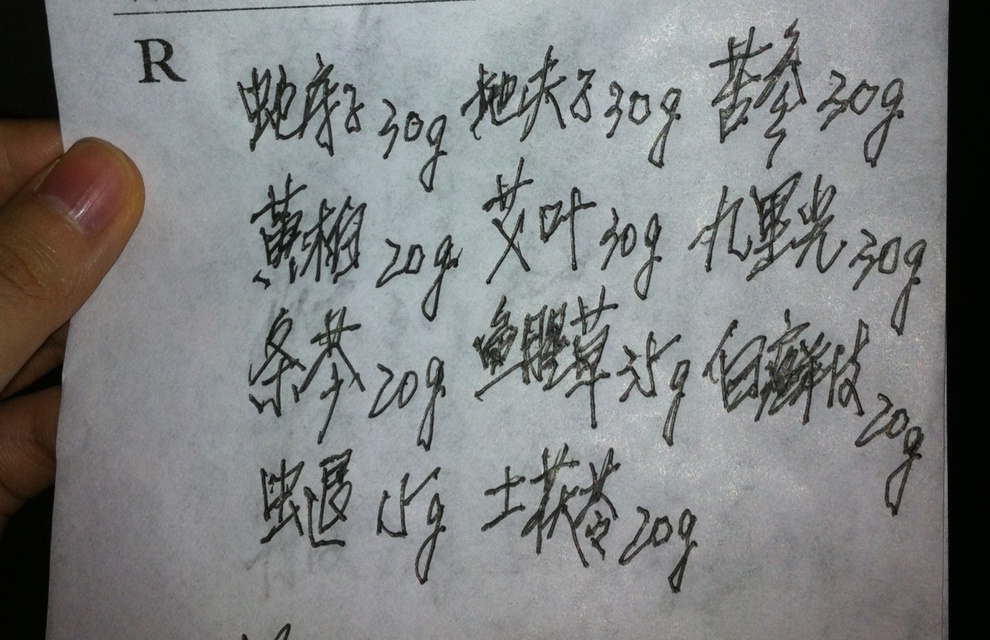 R
蛇床子30g 地夫子30g 苦参30g
黄柏20g 艾叶30g 九里光30g
条芩20g 鱼腥草35g 白癣皮20g
虫退15g 土茯苓20g